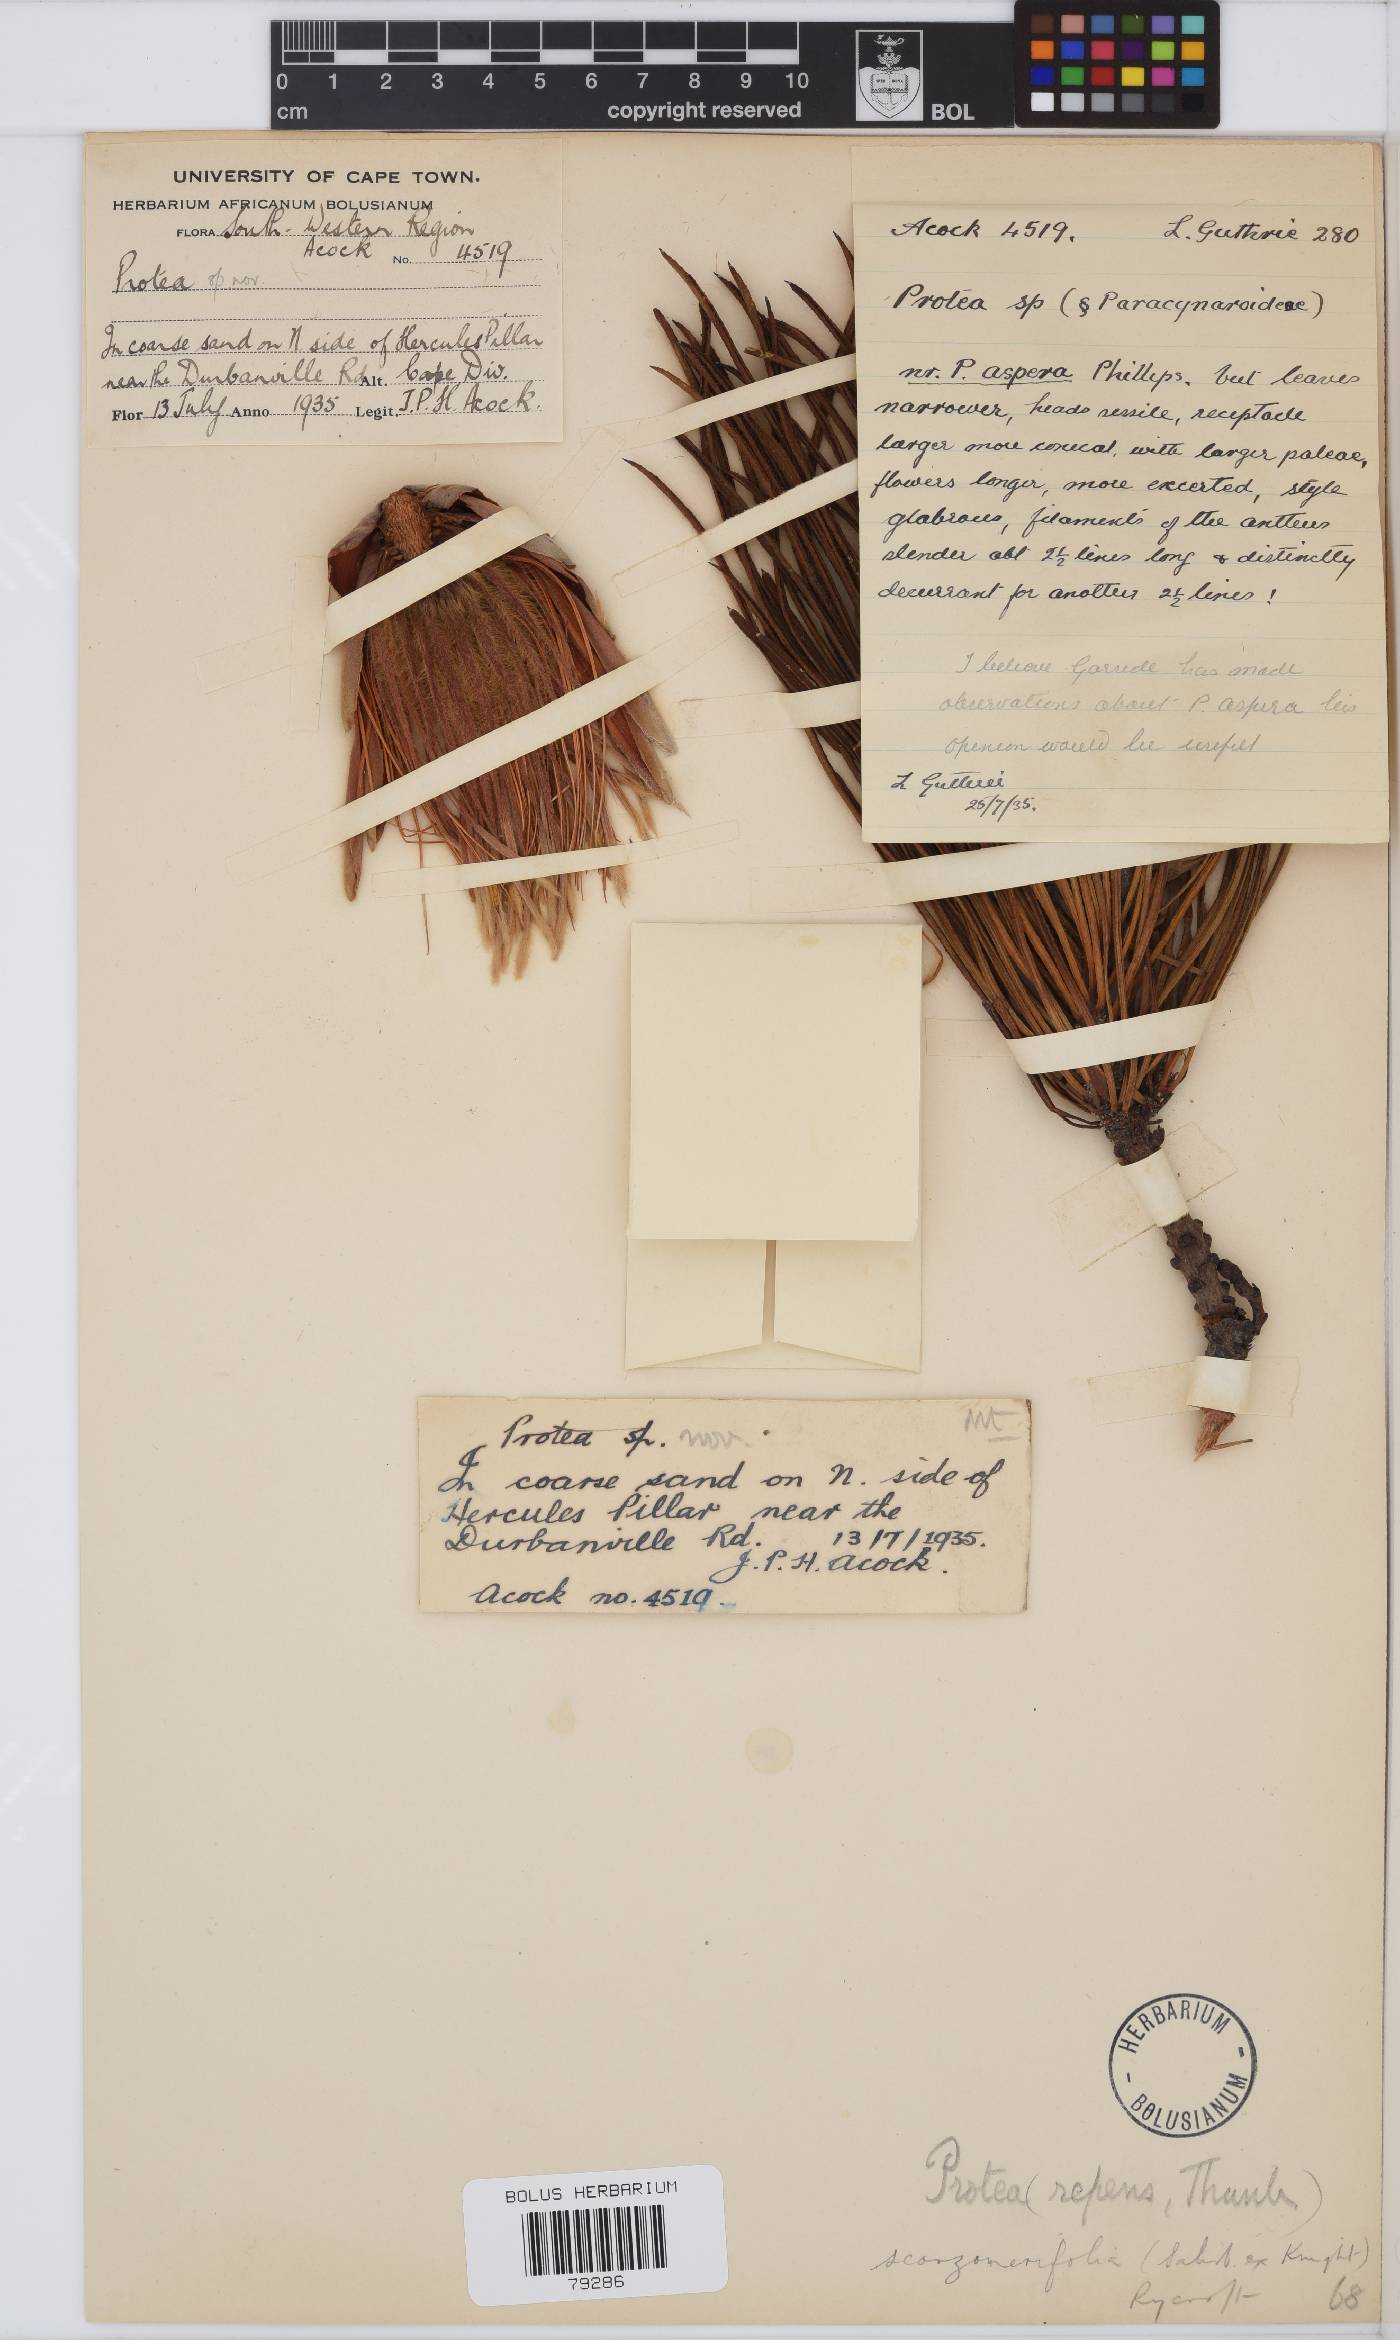 0 1 2 3 4 5 6 7 8 9 10
cm
copyright reserved
BOL
UNIVERSITY OF CAPE TOWN.
HERBARIUM AFRICANUM BOLUSIANUM
FLORA South-Western Region
Acock No. 4519
Protea sp nov.
In coarse sand on N side of Hercules Pillar
near the Durbanville Rd Alt. Cape Div.
Flor 13 July Anno 1935 Legit, J.P.H. Acock.
Acock 4519. L. Guthrie 280
Protea sp (§ Paracynaroideae)
nr. P. aspera Phillips, but leaves
narrower, heads sessile, receptacle
larger more conical, with larger paleae,
flowers longer, more exserted, style
glabrous, filaments of the anthers
slender abt 2½ lines long & distinctly
decurrant for another 2½ lines!
I believe has made
observations about P. aspera his
opinion would be useful
L Guthrie
25/7/35.
Protea sp. nov.
In coarse sand on N. side of
Hercules Pillar near the
Durbanville Rd. 13/7/1935.
J. P. H. Acock.
Acock no. 4519.
HERBARIUM
BOLUSIANUM
Protea (repens, Thunb)
scorzonerifolia (Salisb. ex Knight)
Rycroft 68
BOLUS HERBARIUM
79286